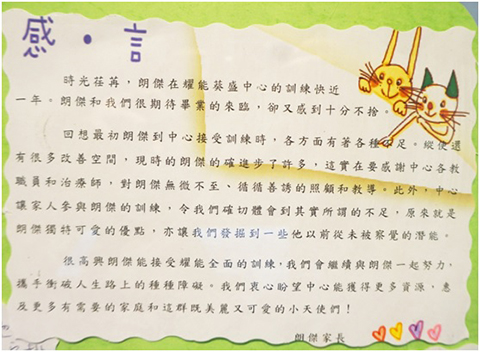 感・言
時光荏苒，朗傑在耀能葵盛中心的訓練快近
一年。朗傑和我們很期待畢業的來臨，卻又感到十分不捨。
回想最初朗傑到中心接受訓練時，各方面有著各種不足。縱使還
有很多改善空間，現時的朗傑的確進步了許多，這實在要感謝中心各教
職員和治療師，對朗傑無微不至、循循善誘的照顧和教導。此外，中心
讓家人參與朗傑的訓練，令我們確切體會到其實所謂的不足，原來就是
朗傑獨特可愛的優點，亦讓我們發掘到一些他以前從未被察覺的潛能。
很高興朗傑能接受耀能全面的訓練，我們會繼續與朗傑一起努力，
攜手衝破人生路上的種種障礙。我們衷心盼望中心能獲得更多資源，惠
及更多有需要的家庭和這群既美麗又可愛的小天使們！
朗傑家長